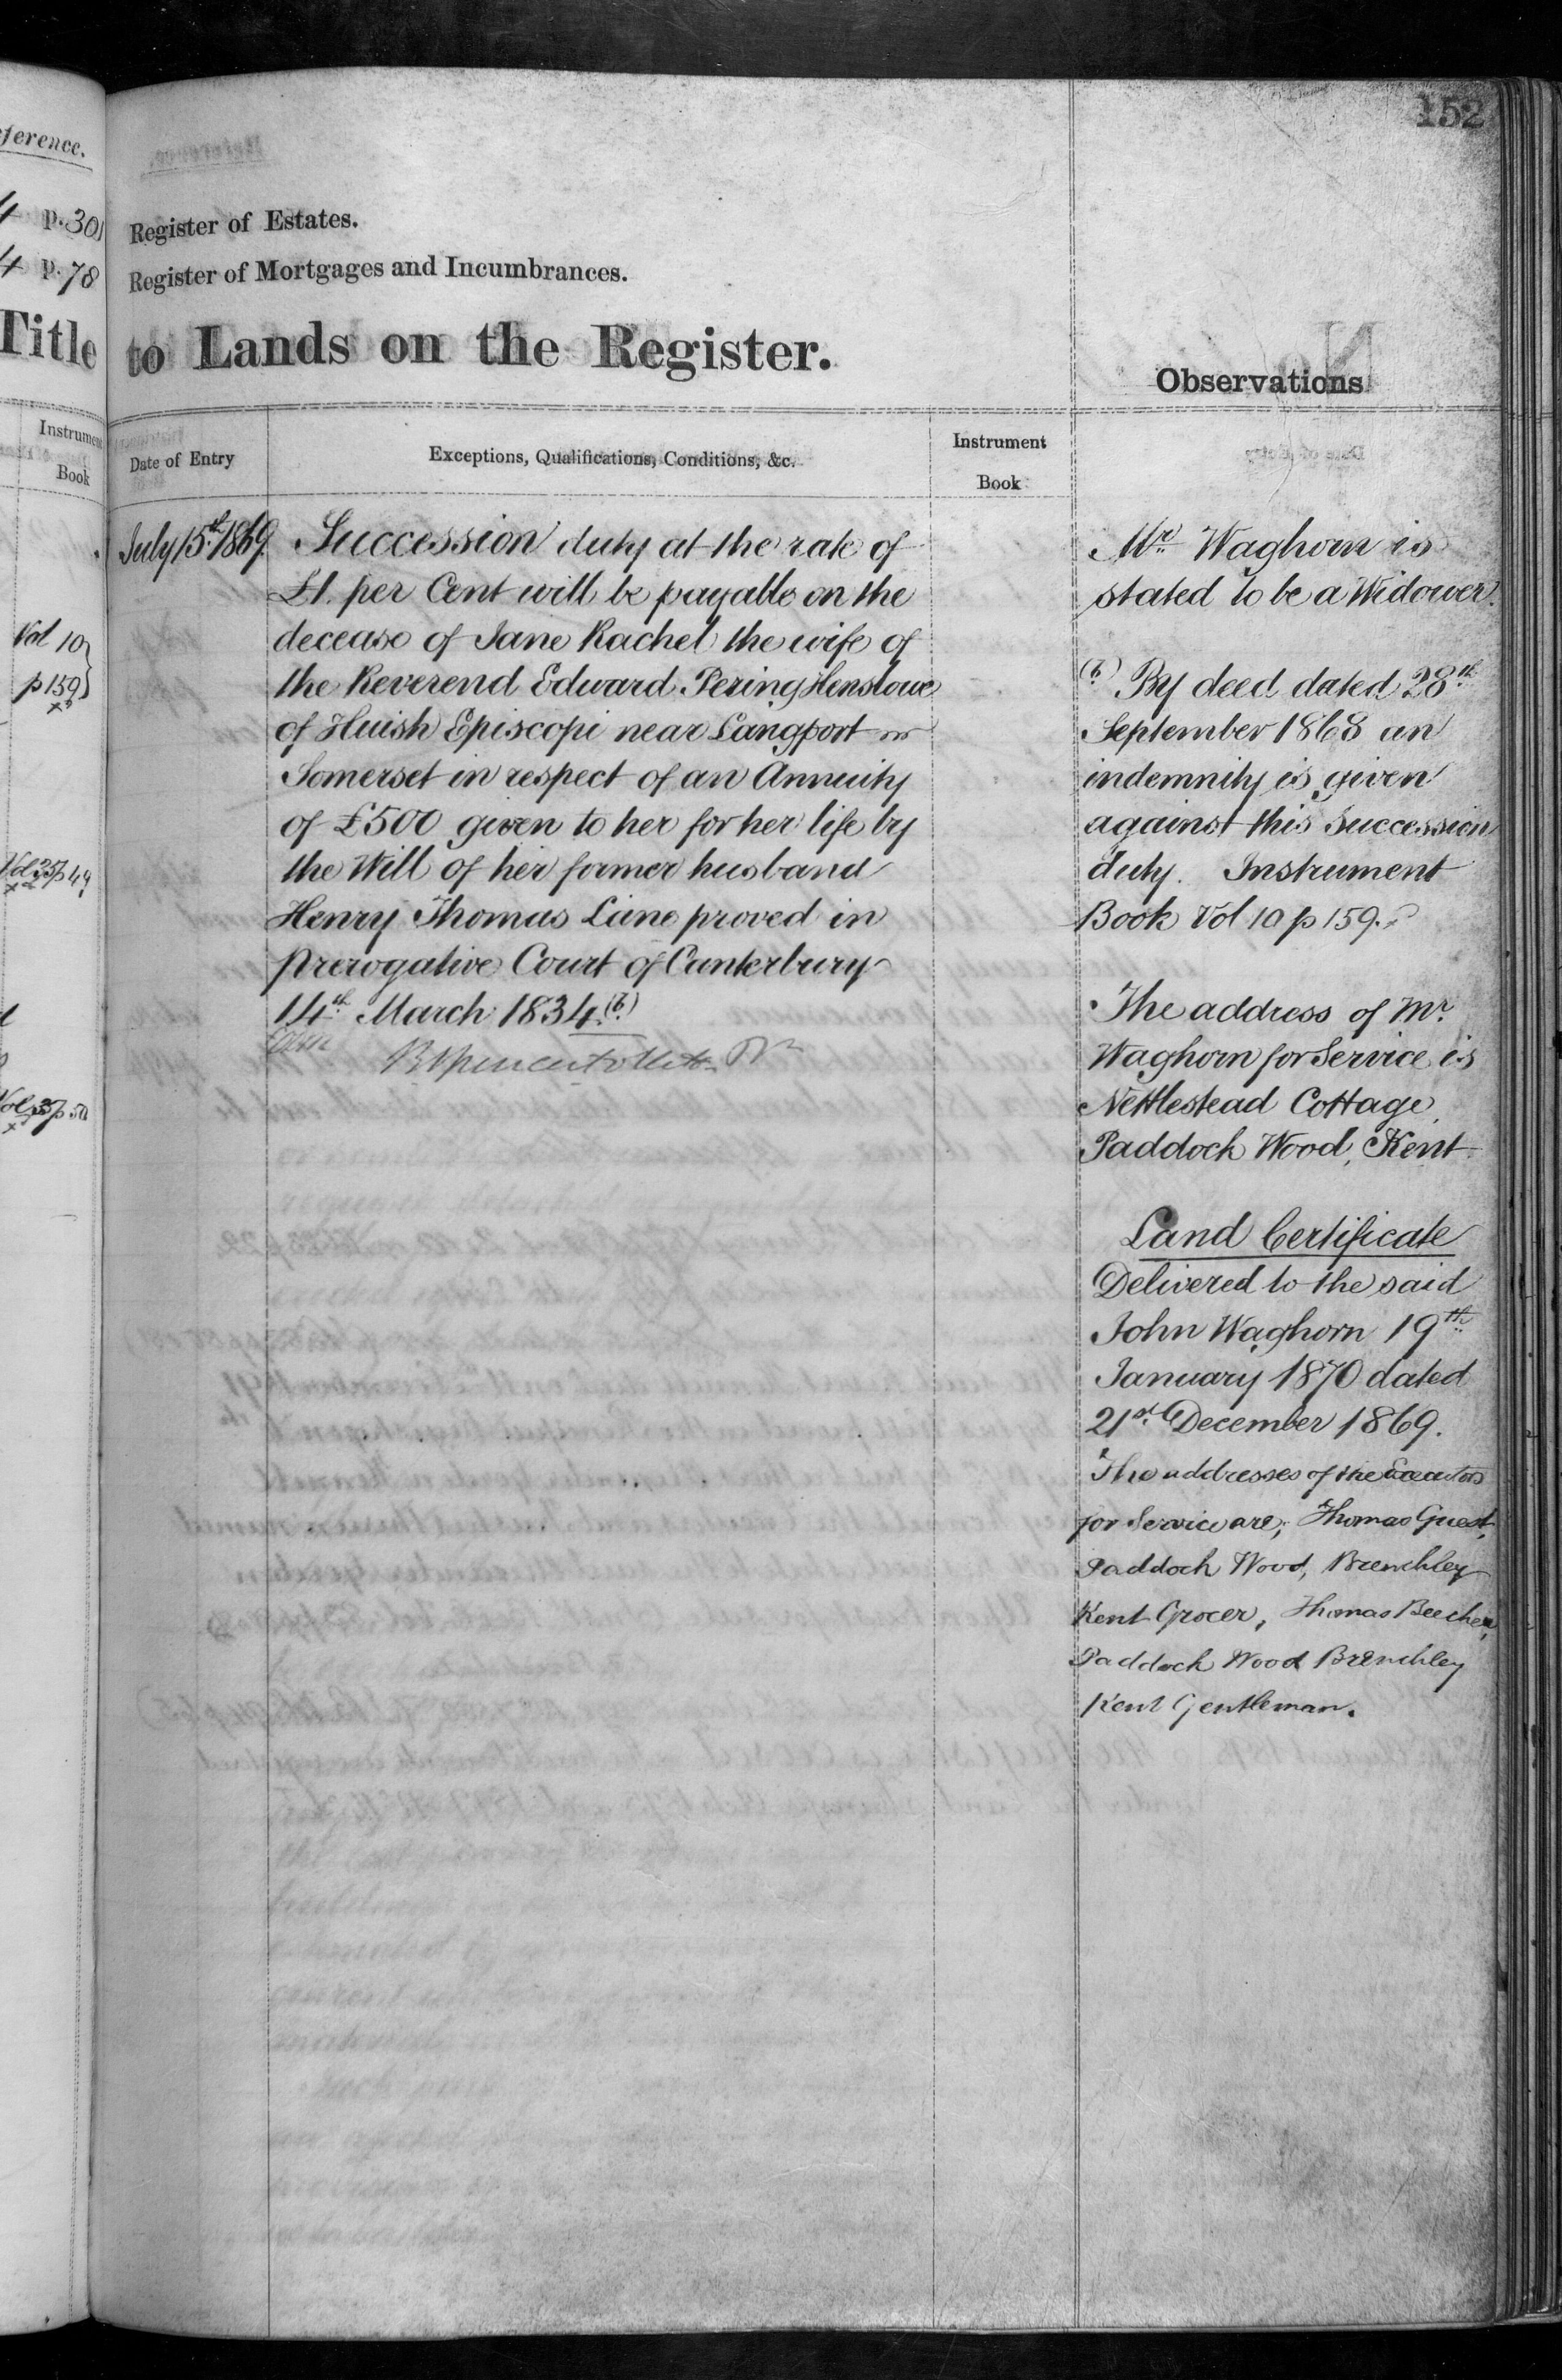 152
ference.
4 p. 301
4 p. 78
Title
Instrument
Book
Vol 10
p 159
Vol 35 p 49
Vol 35 p 50
Register of Estates.
Register of Mortgages and Incumbrances.
to Lands on the Register.
Date of Entry
Exceptions, Qualifications, Conditions, &c.
Instrument
Book
July 15th 1869.
Succession duty at the rate of
£1. per Cent will be payable on the
decease of Jane Rachel the wife of
the Reverend Edward Pering Henslowe
of Huish Episcopi near Langport in
Somerset in respect of an Annuity
of £500 given to her for her life by
the Will of her former husband
Henry Thomas Lane proved in
prerogative Court of Canterbury
14th March 1834. (b.)
Observations
Mr. Waghorn is
stated to be a Widower.
(b.) By deed dated 28th
September 1868 an
indemnity is given
against this Succession
duty. Instrument
Book Vol 10 p 159.
The address of Mr.
Waghorn for Service is
Nettlestead Cottage,
Paddock Wood, Kent
Land Certificate
Delivered to the said
John Waghorn 19th
January 1870 dated
21st December 1869.
The addresses of the Executors
for Service are; Thomas Guest,
Paddock Wood, Brenchley
Kent Grocer, Thomas Beecher,
Paddock Wood Brenchley
Kent Gentleman.